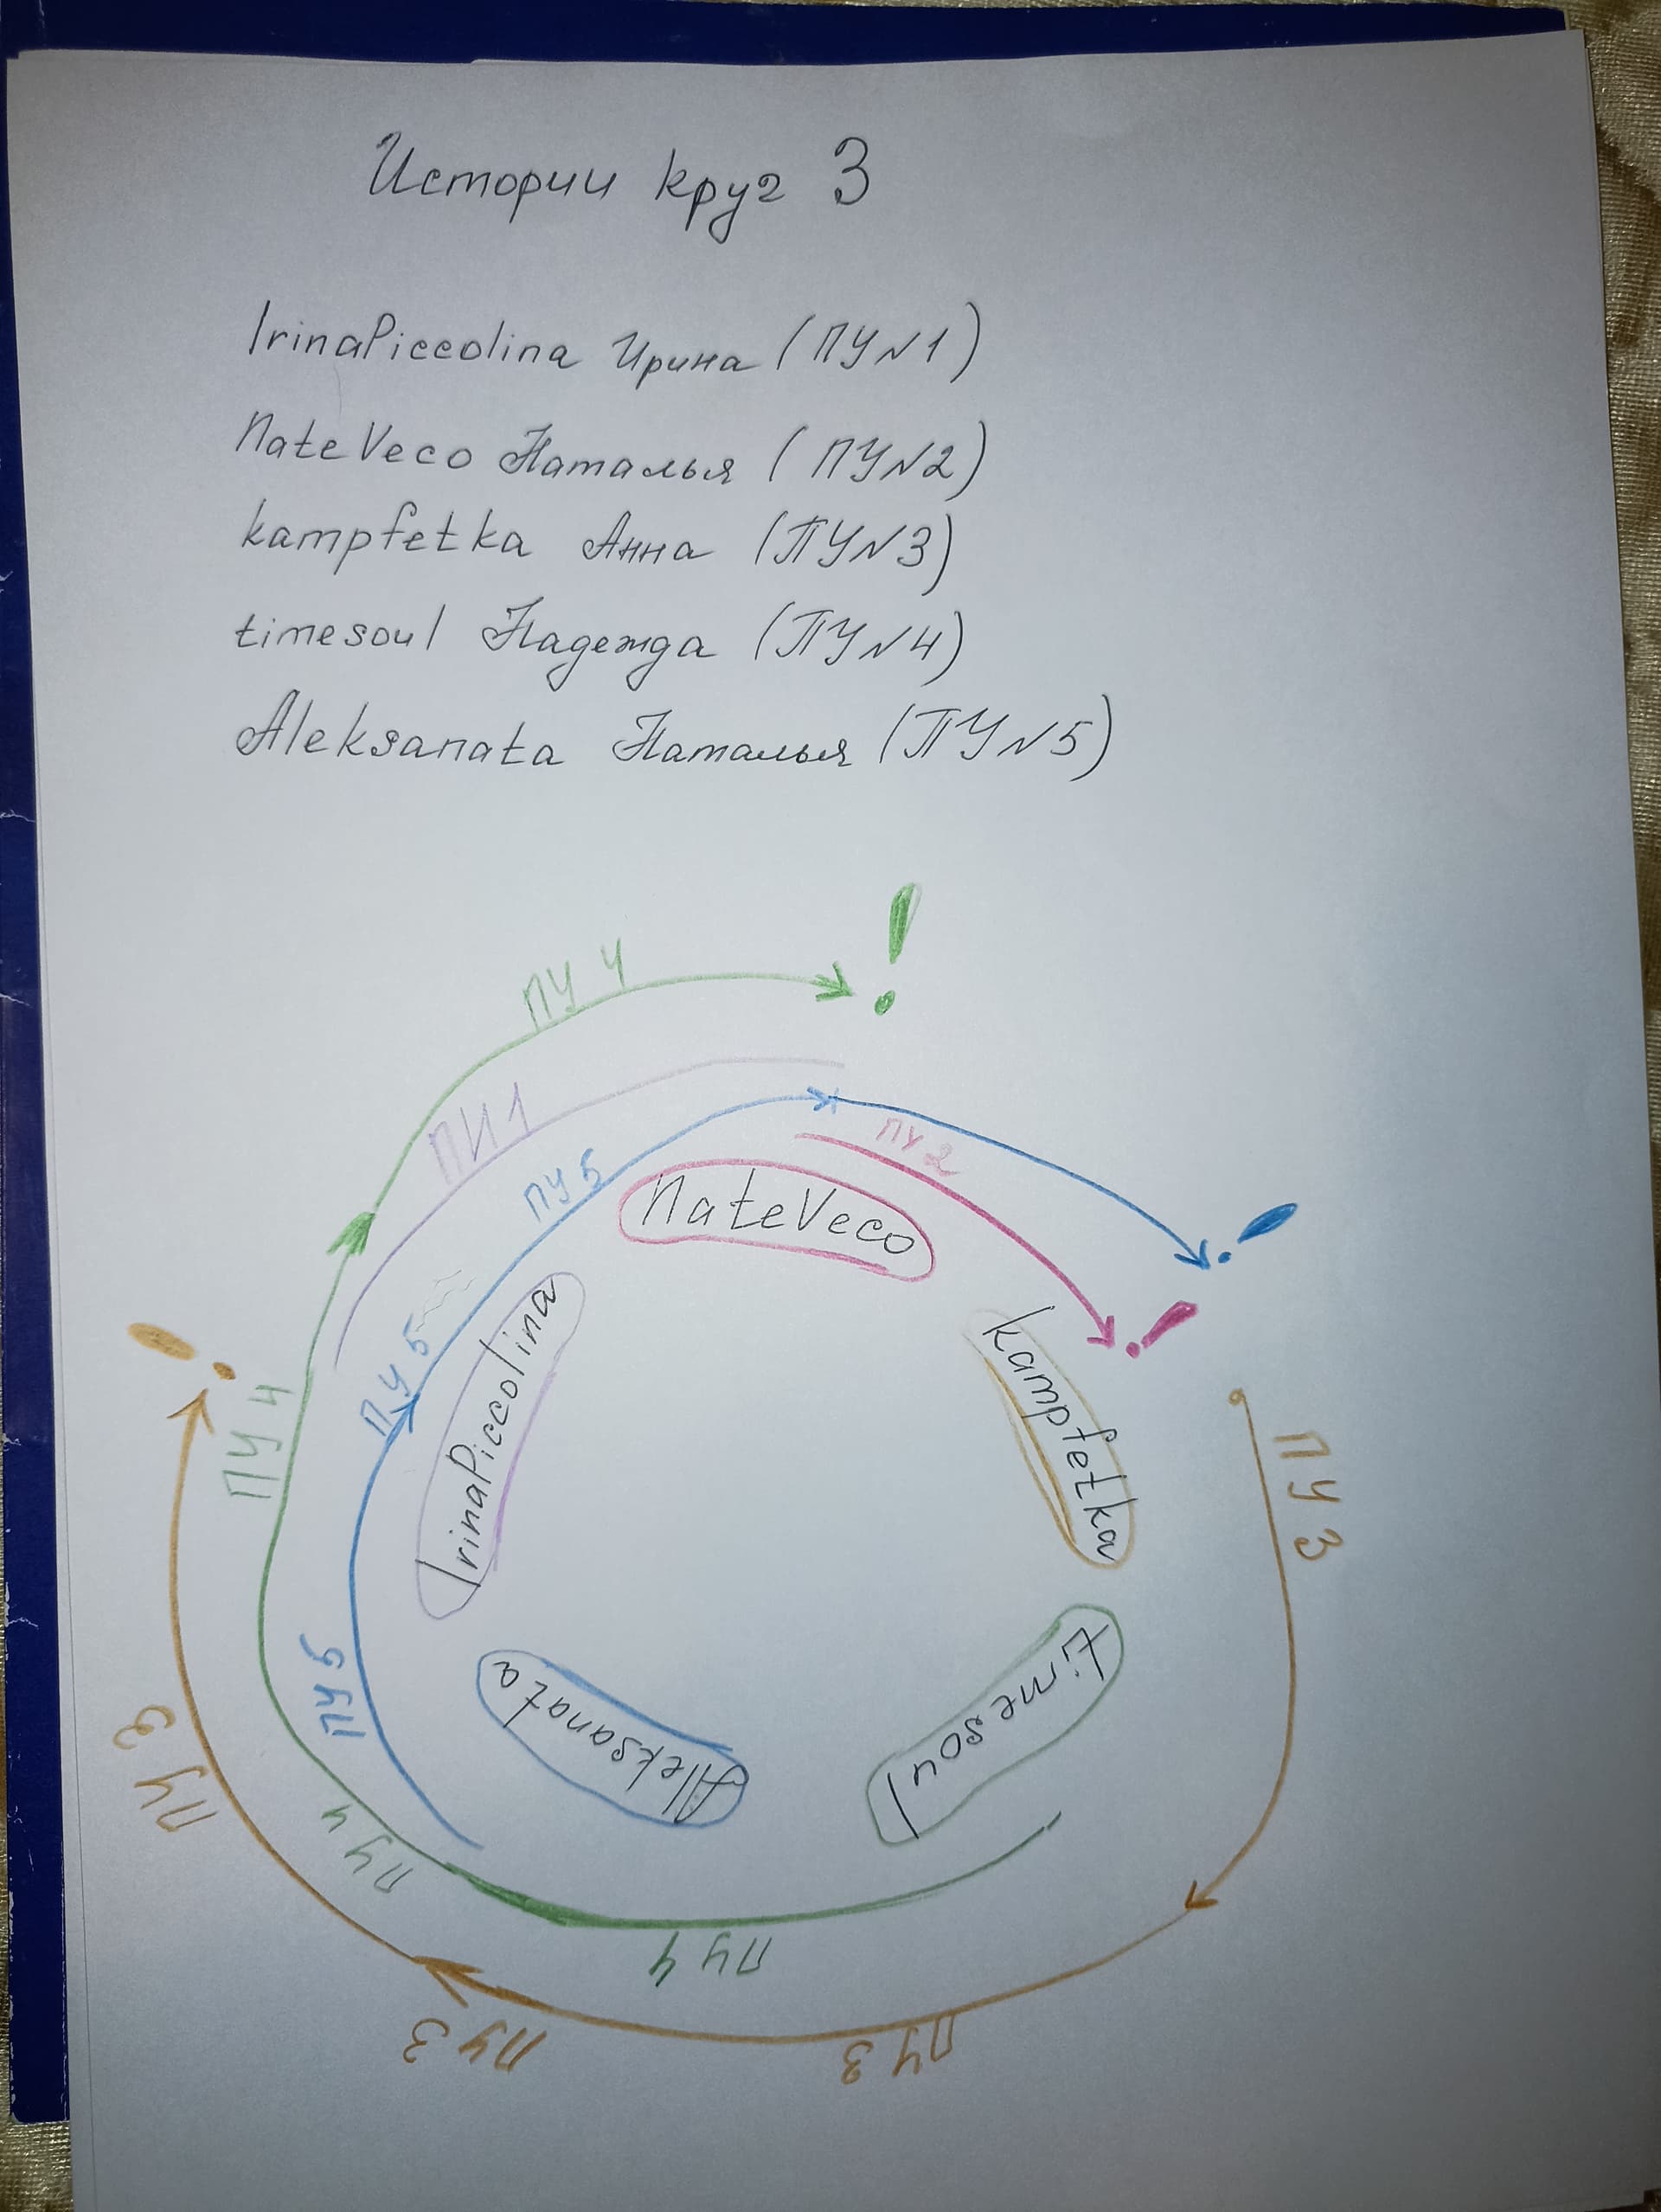 Истории круг 3
IrinaPiccolina Ирина (ПУN1)
NateVeco Наталья (ПУN2)
kampfetka Анна (ПУN3)
timesoul Надежда (ПУN4)
Aleksanata Наталья (ПУN5)
!
ПУ 4
ПИ1
ПУ 2
ПУ 5
NateVeco
!
!
!
ПУ 5
ПУ 4
IrinaPiccolina
kampfetka
ПУ 3
ПУ 5
Aleksanata
timesoul
ПУ 3
ПУ 4
ПУ 4
ПУ 3
ПУ 3